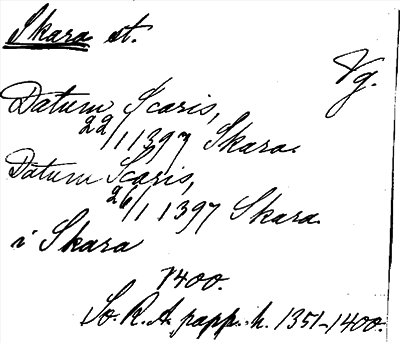 Skara st.
Vg.
Datum Scaris,
22/1 1397 Skara.
Datum Scaris,
26/1 1397 Skara
i Skara
1400.
So. R.A. papp. h. 1351-1400.